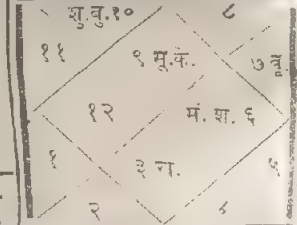 शु.बु.१०
८
११
९ सू.के.
७
१२
मं. श. ६
१
३ रा.
२